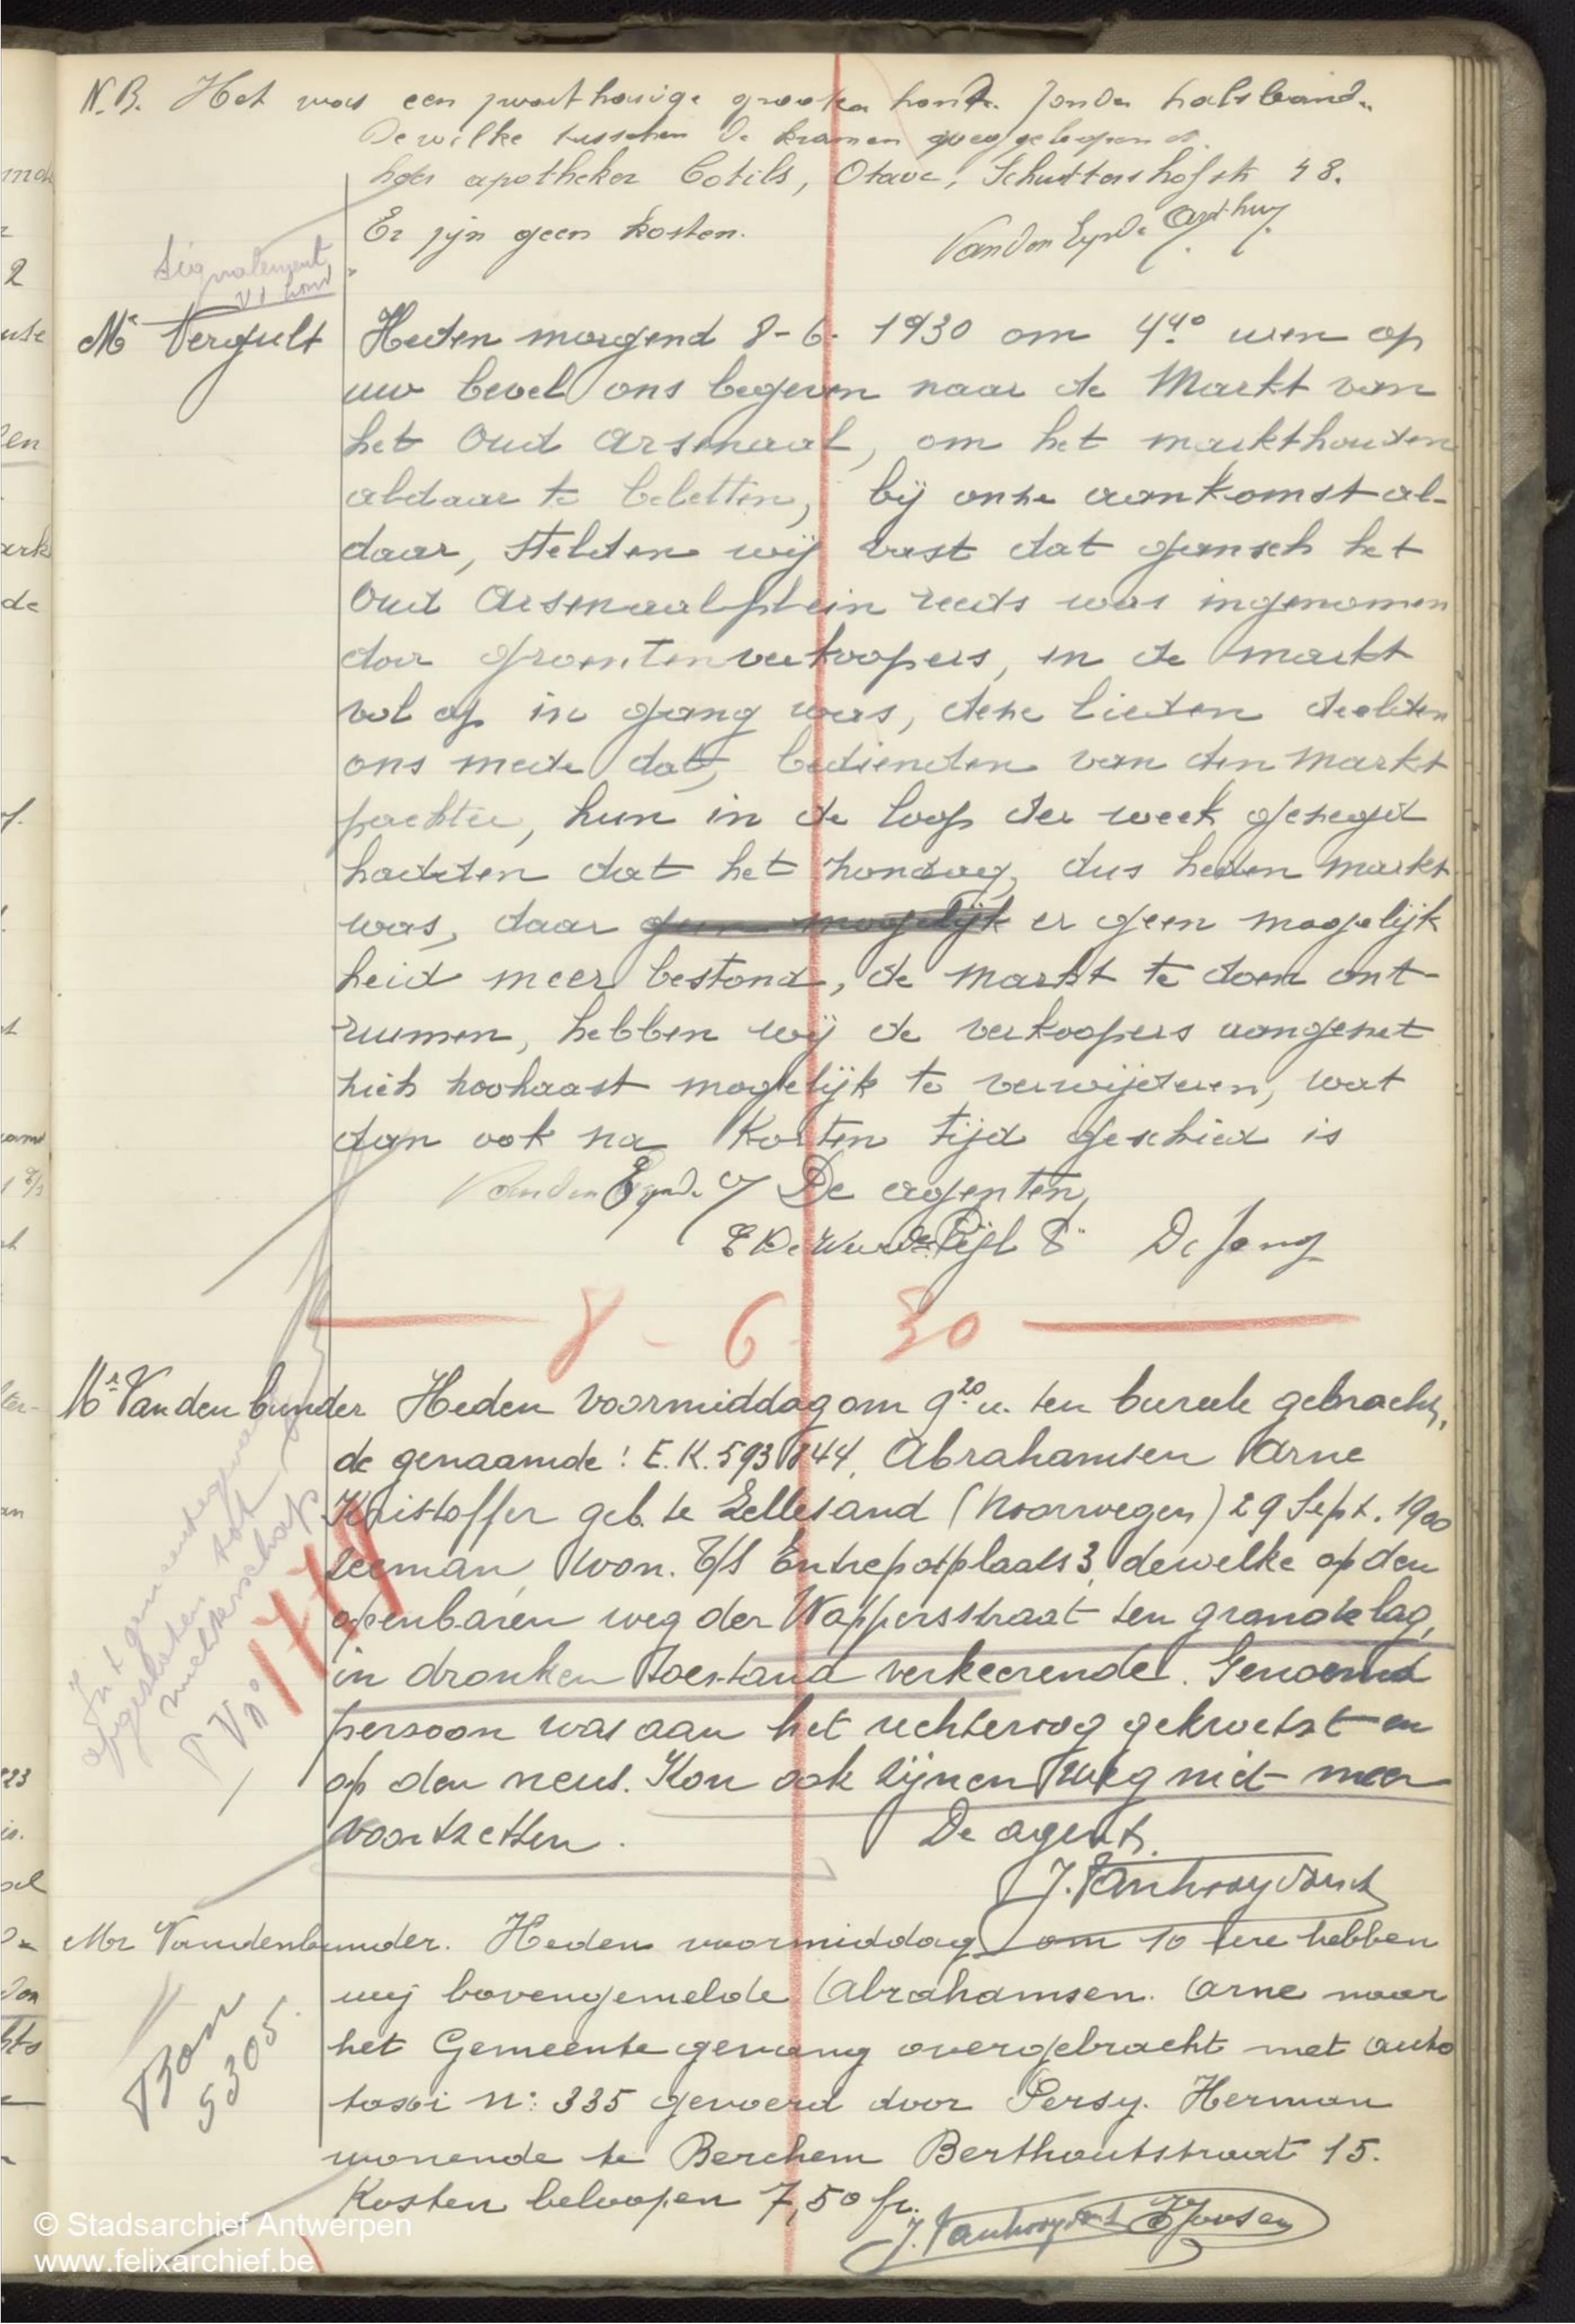 N.B. Het was een zwartharige groote hond. Zonder halsband.
Dewelke tusschen de kramen weggeloopen is.
apotheker Cotils, Otave, Schuttershofstr 48.
Er zijn geen kosten.
Van den Eynde Arthur
Signalement
v/d hond
Mr Vergult
Heden morgend 8-6-1930 om 4 40 uren op
uw bevel ons begeven naar de Markt van
het Oud Arsenaal, om het markthouden
aldaar te beletten, bij onze aankomst al-
daar, stelden wij vast dat gansch het
Oud Arsenaalplein reeds was ingenomen
door groentenverkoopers, en de markt
vol op in gang was, deze lieden deelden
ons mede dat, bedienden van den Markt
pachter, hun in de loop der week gezegd
hadden dat het zondag, dus heden markt
was, daar geen mogelijk er geen mogelijk
heid meer bestond, de markt te doen ont-
ruimen, hebben wij de verkoopers aangezet
zich zoohaast mogelijk te verwijderen, wat
dan ook na korten tijd geschied is
Van den Eynde De agenten,
De Jong
8-6-30
Mr Vandenbunder Heden voormiddag om 9 20 u. ten bureele gebracht,
de genaamde: E.K. 593844, Abrahamsen Arne
Kristoffer geb. te Lellesand (Noorwegen) 29 Sept. 1900
zeeman, won. t/s Entrepotplaats 3, dewelke op den
openbaren weg der Wappersstraat ten gronde lag,
in dronken toestand verkeerende. Genoemd
persoon was aan het rechteroog gekwetst en
op den neus. Kon ook zijnen weg niet meer
voortzetten. De agent,
J. Vanhooydonck
In 't gemeentegevang
opgesloten tot
nuchterschap
P.V. No 1779
Mr Vandenbunder. Heden voormiddag om 10 ure hebben
wij bovengemelde Abrahamsen. Arne naar
het Gemeente gevang overgebracht met auto
taxi n: 335 gevoerd door Persy. Herman
wonende te Berchem Berthoutstraat 15.
Kosten beloopen 7,50 fr.
Bon
5305.
J. Vanhooydonck Joosen
© Stadsarchief Antwerpen
www.felixarchief.be